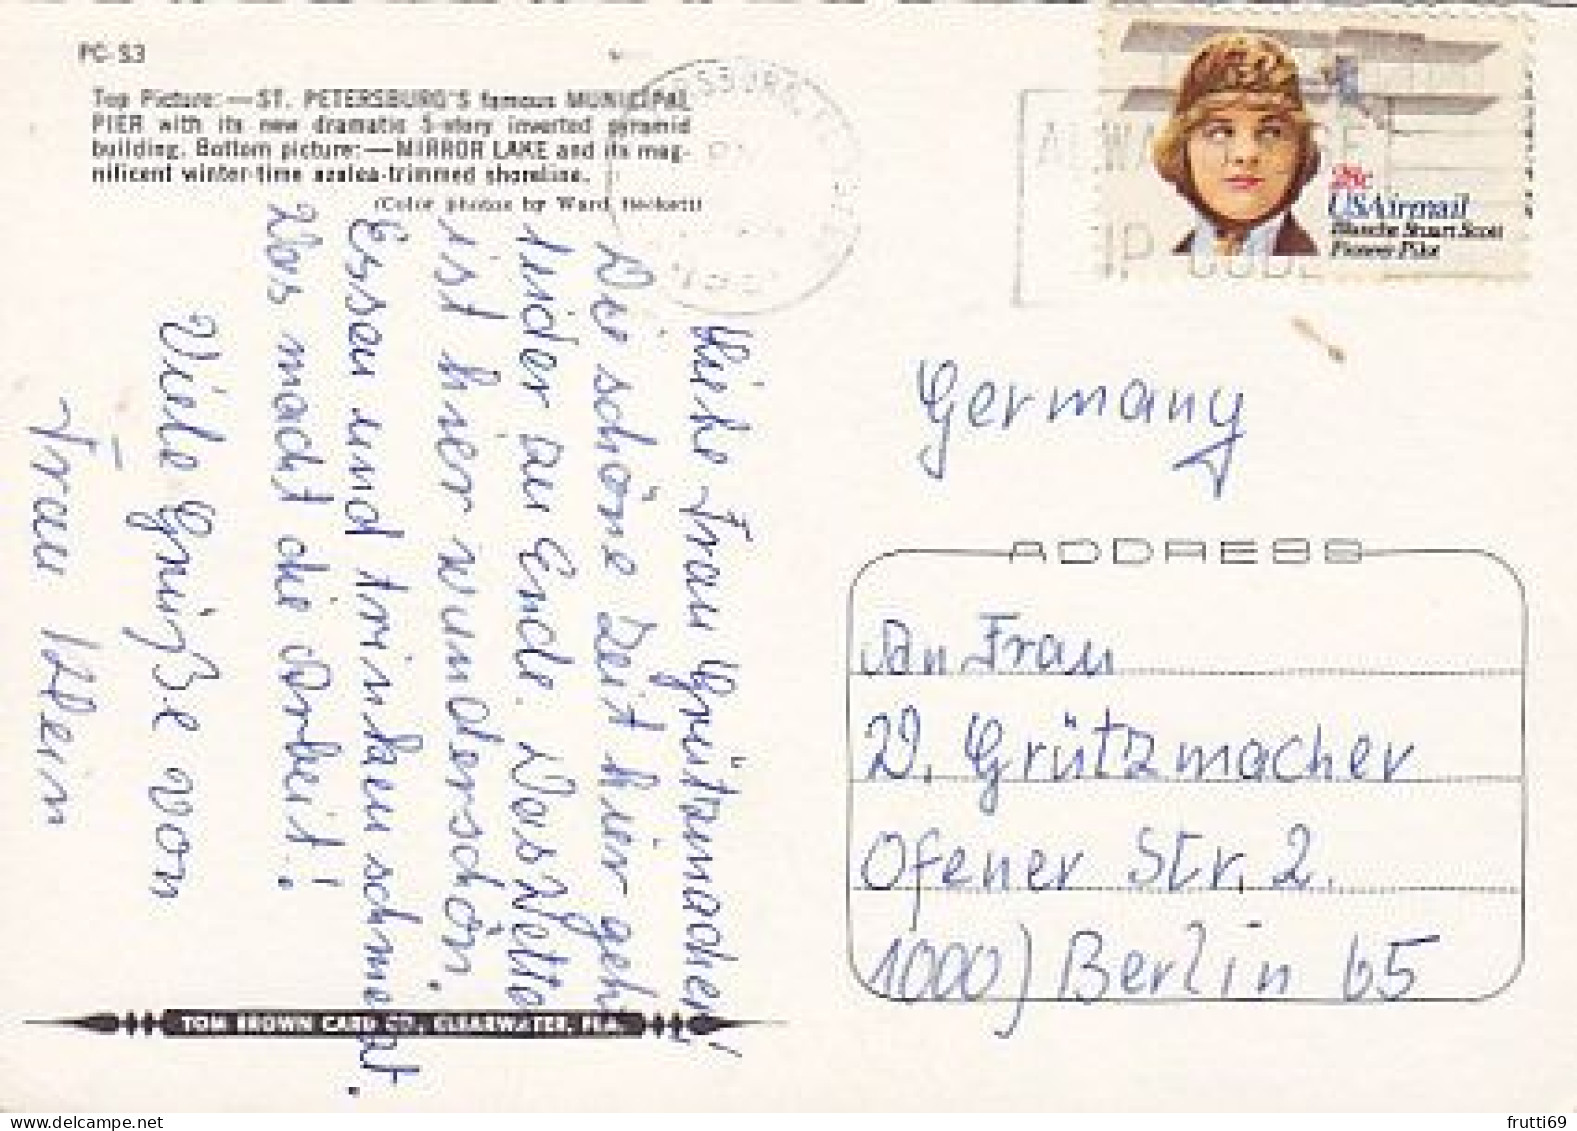 PC-S3
Top Picture:—ST. PETERSBURG'S famous MUNICIPAL
PIER with its new dramatic 5-story inverted pyramid
building. Bottom picture:—MIRROR LAKE and its mag-
nificent winter-time azalea-trimmed shoreline.
(Color photos by Ward Beckett)
28c
USAirmail
Blanche Stuart Scott
Pioneer Pilot
Liebe Frau Grützmacher!
Die schöne Zeit hier geht
leider zu Ende. Das Wetter
ist hier wunderschön,
Essen und trinken schmeckt.
Das macht die Arbeit!
Viele Grüße von
Frau Klein
Germany
ADDRESS
An Frau
D. Grützmacher
Ofener Str. 2.
1000) Berlin 65
TOM BROWN CARD CO., CLEARWATER, FLA.
frutti69